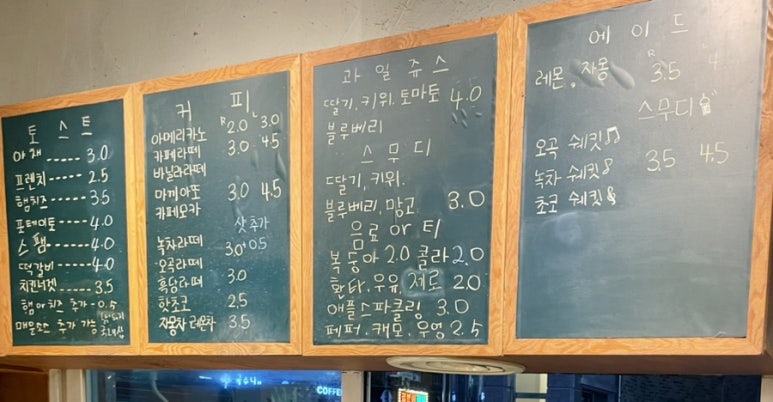 토 스 트
야채 ----- 3.0
프렌치 ----- 2.5
햄치즈 ---- 3.5
포테이토 ---- 4.0
스팸 ----- 4.0
떡갈비 ---- 4.0
치킨너겟 ---- 3.5
햄 or 치즈 추가 - 0.5
매운소스 추가 가능
커 피
R L
아메리카노 2.0 3.0
카페라떼 3.0 4.5
바닐라라떼
마끼아또 3.0 4.5
카페모카
샷추가
녹차라떼 3.0 +0.5
오곡라떼
흑당라떼 3.0
핫초코 2.5
자몽차 레몬차 3.5
과 일 쥬 스
딸기, 키위, 토마토 4.0
블루베리
스 무 디
딸기, 키위,
블루베리, 망고 3.0
음료 or 티
복동아 2.0 콜라 2.0
환타, 우유, 제로 2.0
애플스파클링 3.0
페퍼, 캐모, 우영 2.5
에 이 드
R L
레몬, 자몽 3.5 4
스무디
오곡 쉐킷
녹차 쉐킷 3.5 4.5
초코 쉐킷
COFFE